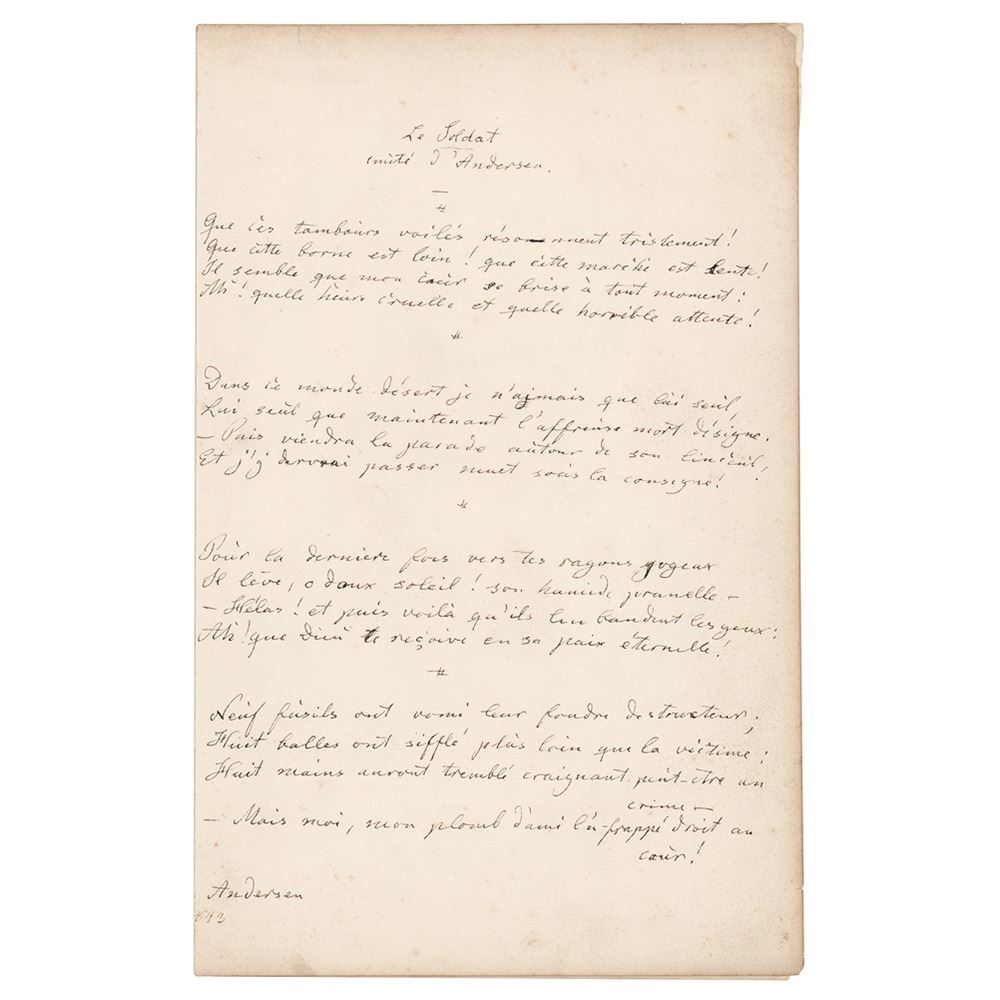 Le Soldat
imité d'Andersen.
Que ces tambours voilés résonnent tristement!
Que cette borne est loin! que cette marche est lente!
Il semble que mon cœur se brise à tout moment:
Ah! quelle heure cruelle et quelle horrible attente!
Dans ce monde désert je n'aimais que lui seul,
Lui seul que maintenant l'affreuse mort désigne.
– Puis viendra la parade autour de son linceul,
Et j'y devrai passer muet sous la consigne!
Pour la derniere fois vers tes rayons joyeux
Il lève, o doux soleil! son humide prunelle –
– Hélas! et puis voilà qu'ils lui bandent les yeux:
Ah! que Dieu te reçoive en sa paix éternelle!
Neuf fusils ont vomi leur foudre destructeur;
Huit balles ont sifflé plus loin que la victime;
Huit mains auront tremblé craignant peut-être un
crime –
– Mais moi, mon plomb d'ami l'a frappé droit au
cœur!
Andersen